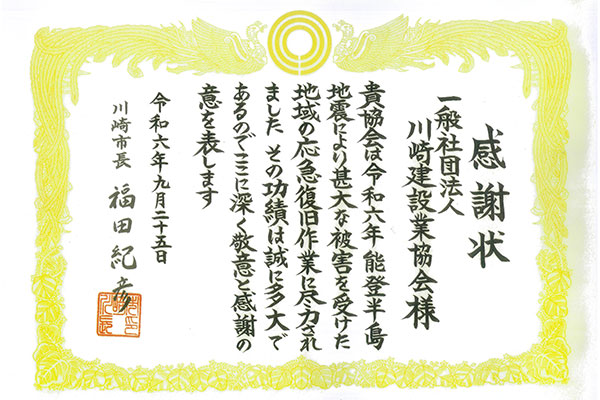 感謝状
一般社団法人
川崎建設業協会様
貴協会は令和六年能登半島
地震により甚大な被害を受けた
地域の応急復旧作業に尽力され
ました その功績は誠に多大で
あるのでここに深く敬意と感謝の
意を表します
令和六年九月二十五日
川崎市長 福田紀彦